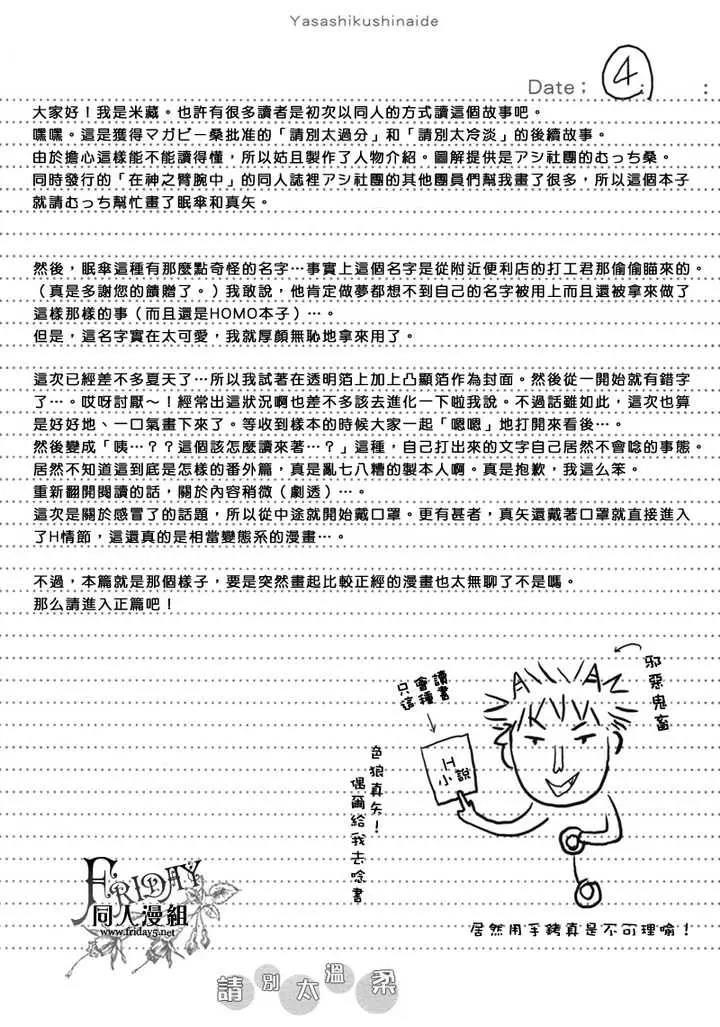 Yasashikushinaide
Date : 4 : :
大家好！我是米藏。也許有很多讀者是初次以同人的方式讀這個故事吧。
嘿嘿。這是獲得マガビー桑批准的「請別太過分」和「請別太冷淡」的後續故事。
由於擔心這樣能不能讀得懂，所以姑且製作了人物介紹。圖解提供是アシ社團的むっち桑。
同時發行的「在神之臂腕中」的同人誌裡アシ社團的其他團員們幫我畫了很多，所以這個本子
就請むっち幫忙畫了眠傘和真矢。
然後，眠傘這種有那麼點奇怪的名字…事實上這個名字是從附近便利店的打工君那偷偷瞄來的。
（真是多謝您的饋贈了。）我敢說，他肯定做夢都想不到自己的名字被用上而且還被拿來做了
這樣那樣的事（而且還是HOMO本子）…。
但是，這名字實在太可愛，我就厚顏無恥地拿來用了。
這次已經差不多夏天了…所以我試著在透明箔上加上凸顯箔作為封面。然後從一開始就有錯字
了…。哎呀討厭～！經常出這狀況啊也差不多該去進化一下啦我說。不過話雖如此，這次也算
是好好地、一口氣畫下來了。等收到樣本的時候大家一起「嗯嗯」地打開來看後…。
然後變成「咦…？？這個該怎麼讀來著…？」這種，自己打出來的文字自己居然不會唸的事態。
居然不知道這到底是怎樣的番外篇，真是亂七八糟的製本人啊。真是抱歉，我這么笨。
重新翻開閱讀的話，關於內容稍微（劇透）…。
這次是關於感冒了的話題，所以從中途就開始戴口罩。更有甚者，真矢還戴著口罩就直接進入
了H情節，這還真的是相當變態系的漫畫…。
不過，本篇就是那個樣子，要是突然畫起比較正經的漫畫也太無聊了不是嗎。
那么請進入正篇吧！
邪惡鬼畜
只會讀
這種書
H
小說
色狼真矢！
偶爾給我去唸書
居然用手銬真是不可理喻！
FRIDAY
同人漫組
www.friday5.net
請別太溫柔